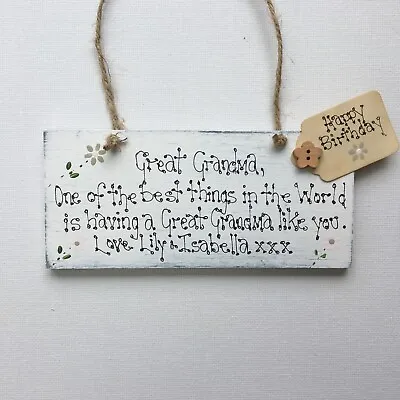 Great Grandma,
One of the best things in the World
is having a Great Grandma like you.
Love Lily & Isabella xxx
Happy
Birthday